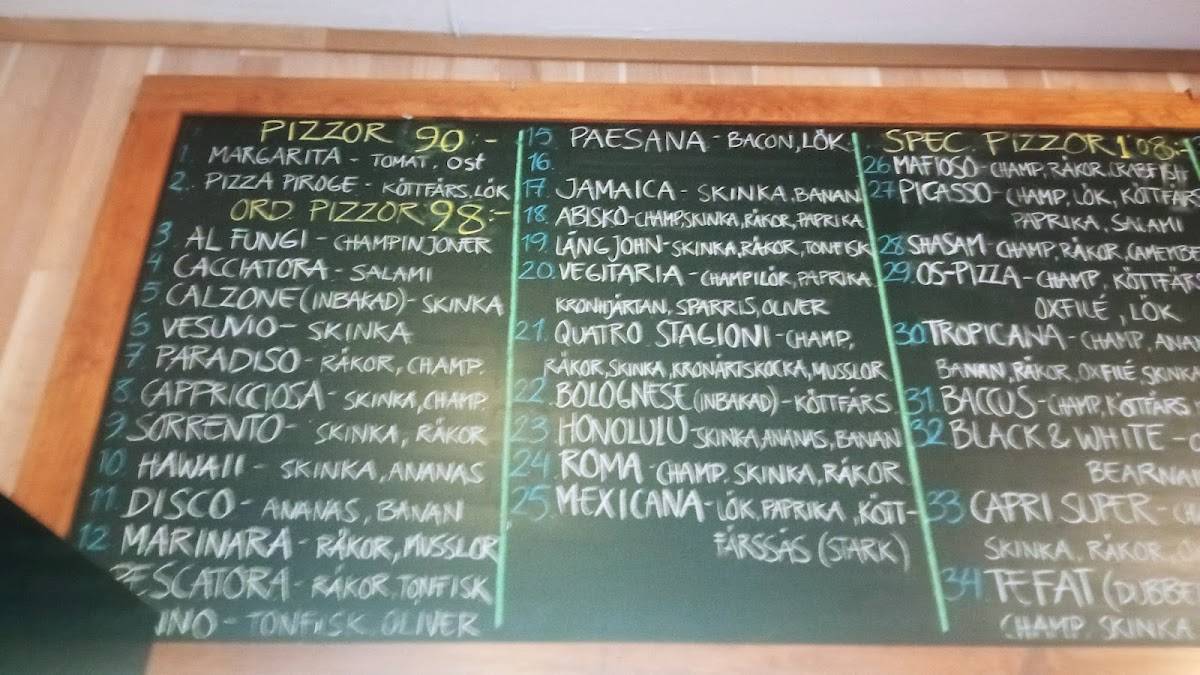 PIZZOR 90:-
1. MARGARITA - TOMAT, OST
2. PIZZA PIROGE - KÖTTFÄRS, LÖK
ORD. PIZZOR 98:-
3. AL FUNGI - CHAMPINJONER
4 CACCIATORA - SALAMI
5 CALZONE (INBAKAD) - SKINKA
6 VESUVIO - SKINKA
7 PARADISO - RÄKOR, CHAMP.
8. CAPPRICCIOSA - SKINKA, CHAMP.
9. SORRENTO - SKINKA, RÄKOR
10. HAWAII - SKINKA, ANANAS
11 DISCO - ANANAS, BANAN
12 MARINARA - RÄKOR, MUSSLOR
PESCATORA - RÄKOR, TONFISK
INO - TONFISK, OLIVER
15. PAESANA - BACON, LÖK
16.
17. JAMAICA - SKINKA, BANAN
18. ABISKO - CHAMP, SKINKA, RÄKOR, PAPRIKA
19. LÅNG JOHN - SKINKA, RÄKOR, TONFISK
20. VEGITARIA - CHAMP, LÖK, PAPRIKA
KRONHJÄRTAN, SPARRIS, OLIVER
21. QUATRO STAGIONI - CHAMP,
RÄKOR, SKINKA, KRONÄRTSKOCKA, MUSSLOR
22. BOLOGNESE (INBAKAD) - KÖTTFÄRS
23. HONOLULU SKINKA, ANANAS, BANAN
24. ROMA - CHAMP. SKINKA, RÄKOR
25. MEXICANA - LÖK, PAPRIKA, KÖTT-
FÄRSSÅS (STARK)
SPEC. PIZZOR 108:-
26 MAFIOSO - CHAMP, RÄKOR, CRABFISH
27 PICASSO - CHAMP, LÖK, KÖTTFÄRS
PAPRIKA, SALAMI
28 SHASAM - CHAMP, RÄKOR, CAMEMBE
29. OS-PIZZA - CHAMP, KÖTTFÄRS
OXFILÉ, LÖK
30. TROPICANA - CHAMP, ANAN
BANAN, RÄKOR, OXFILÉ, SKINKA
31. BACCUS - CHAMP, KÖTTFÄRS
32 BLACK & WHITE -
BEARNA
33 CAPRI SUPER - CH
SKINKA, RÄKOR,
34. TEFAT (DUBBE
CHAMP. SKINKA